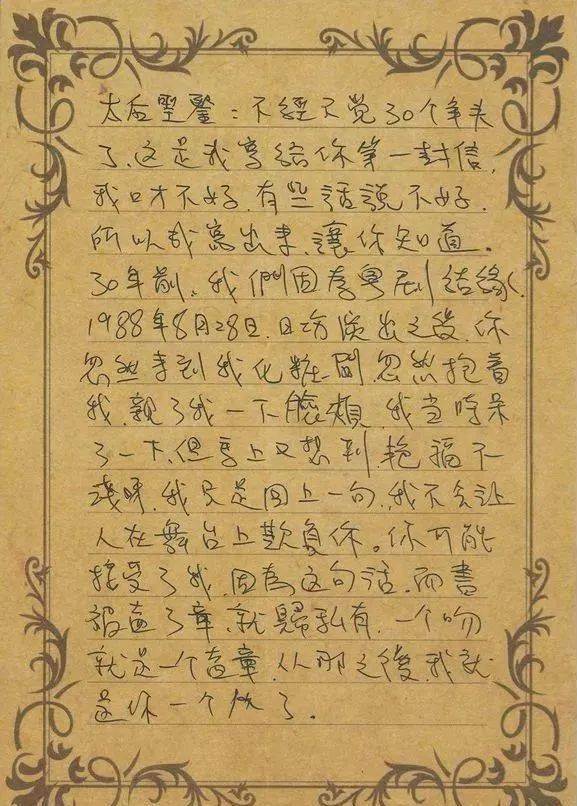 太后聖鑒：不經不覺30个年头
了，这是我寫給你第一封信，
我口才不好，有些話說不好，
所以我寫出來，讓你知道。
30年前，我們因為粵劇結緣，
1988年8月28日，日場演出之後，你
忽然來到我化粧間，忽然抱着
我，親了我一下臉頰，我当時呆
了一下，但馬上又想到艷福不
淺呀，我只是回上一句，我不会让
人在舞台上欺負你。你可能
接受了我，因為这句話，而書
被盖了章，就歸私有，一个吻
就是一个盖章，从那之後，我就
是你一个